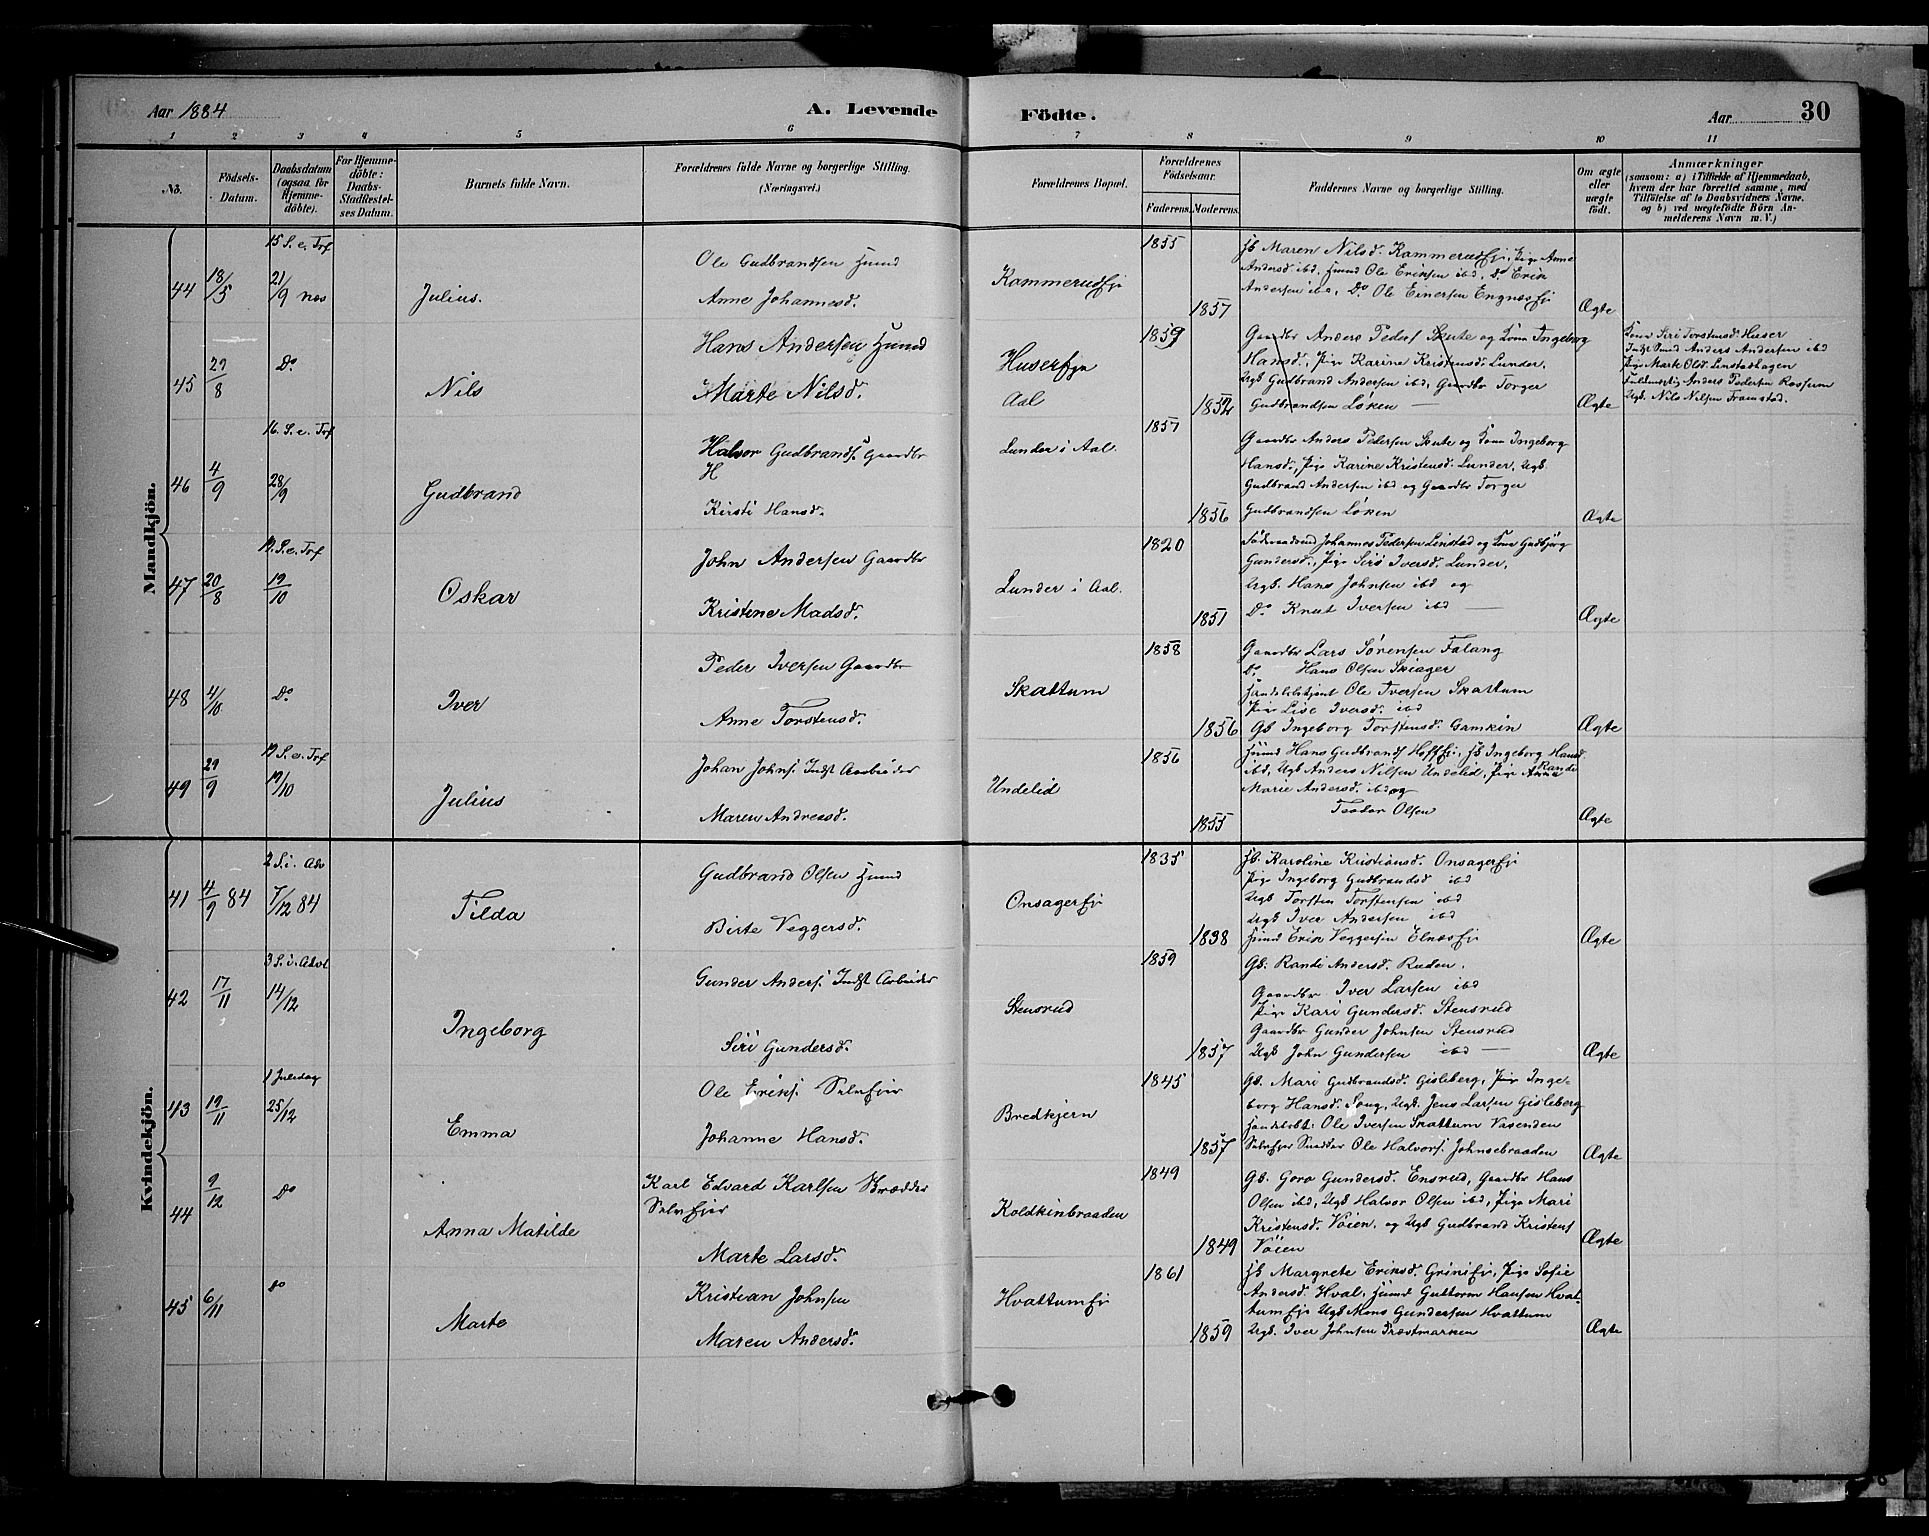 Aar 1884
A. Levende
Födte.
Aar
30
1 2 3 4 5 6 7 8 9 10 11
No.
Födsels-
Datum.
Daabsdatum
(ogsaa for
Hjemme-
döbte).
For Hjemme-
döbte:
Daabs-
Stadfæstel-
ses Datum.
Barnets fulde Navn.
Forældrenes fulde Navne og borgerlige Stilling.
(Næringsvei.)
Forældrenes Bopæl.
Forældrenes
Födselsaar.
Faderens. Moderens.
Faddernes Navne og borgerlige Stilling.
Om ægte
eller
uægte
født.
Anmærkninger
(saasom: a) i Tilfælde af Hjemmedaab,
hvem der har forrettet samme, med
Tilföielse af to Daabsvidners Navne,
og b) ved uægtefödte Börn An-
melderens Navn m. V.)
Mandkjön.
44
18/5
15 S. e. Trf
21/9 Næs
Julius.
Ole Gudbrandsen Husmd
Anne Johannesd.
Kammerudeje
1855
1857
Maren Nilsd. Kammerudej, Pige Anne
Andersd ibd, Husmd Ole Eriksen ibd, Do Erik
Andersen ibd, Do. Ole Einersen Engnæsej
Ægte
45
29/8
Do
Nils
Hans Andersen Husmd
Marte Nilsd.
Huserejе
Aal
1859
1852
Gaardbr Anders Peders Skute og Kone Ingeborg
Hansd, Pige Karine Kristensd. Lunder,
Ugk Gudbrand Andersen ibd, Gaardbr Torger
Gudbrandsen Løken
Ægte
Kone Siri Torstensd. Huser
Anders Andersen ibd
Pige Marte Olsd. Linstadhagen
Anders Pedersen Rossum
Ugk. Nils Nilsen Framstad.
46
4/9
16. S. e. Trf
28/9
Gudbrand
Halvor Gudbrands. Gaardbr
H
Kirsti Hansd.
Lunder i Aal.
1857
1856
Gaardbr Anders Pedersen Skute og Kone Ingeborg
Hansd., Pige Karine Kristensd. Lunder, Ugk.
Gudbrand Andersen ibd og Gaardbr Torger
Gudbrandsen Løken
Ægte
47
20/8
19. S. e. Trf
19/10
Oskar
John Andersen Gaardbr
Kristine Madsd.
Lunder i Aal.
1820
1851
Föderaadsmd Johannes Pedersen Linstad og Kone Gudbjør
Gundersd., Pige Siri Iversd. Lunder,
Ugk. Hans Johnsen ibd og
Do Knut Iversen ibd
Ægte
48
4/10
Do.
Iver
Peder Iversen Gaardbr
Anne Torstensd.
Skattum
1858
1856
Gaardbr Lars Sørensen Falang
Do. Hans Olsen Skiager
Handelsbetjent Ole Iversen Skattum
Pige Lise Iversd. ibd
Gk Ingeborg Torstensd. Gamkin
Ægte
49
29/9
19 S. e. Trf
19/10
Julius
Johan Johns. Indst Arbeider
Maren Andreasd.
Undelid
1856
1855
Husmd Hans Gudbrands Hoffej, Ingeborg Hansd.
ibd, Ugk Anders Nilsen Undelid, Pige Anna Randi
Marie Andersd. ibd og
Teodor Olsen
Ægte
Kvindekjön.
41
4/9 84
2 S. i. Adv
7/12 84
Tilda
Gudbrand Olsen Husmd
Birte Veggersd.
Onsagerej
1835
1838
Karoline Kristiansd. Onsagerej
Pige Ingeborg Gudbrandsd ibd
Ugk Torsten Torstensen ibd
Ugk Iver Andersen ibd
Husmd Erik Veggersen Elnæsej
Ægte
42
17/11
3 S. i. Advt
14/12
Ingeborg
Gunder Anders. Indst Arbeider
Siri Gundersd.
Stensrud
1859
1857
Gk. Randi Andersd. Ruden.
Gaardbr Iver Larsen ibd
Pige Kari Gundersd. Stensrud
Gaardbr Gunder Johnsen Stensrud
Ugk John Gundersen ibd
Ægte
43
19/11
1 Juledag
25/12
Emma
Ole Eriks. Selvejer
Johanne Hansd.
Bredkjern
1845
1857
Gk. Mari Gudbrandsd. Gisleberg, Pige Inge-
borg Hansd. Soug, Ugk. Jens Larsen Gisleberg
Handelsbt. Ole Iversen Skattum Vasenden
Selvejer Ole Halvors. Johnsebraaden
Ægte
44
9/12
Do
Anna Matilde
Karl Edvard Karlsen Skrædder
Selvejer
Marte Larsd.
Koldkinbraaden
1849
1849
Gk. Goro Gundersd. Ensrud, Gaardbr Hans
Olsen ibd, Ugk Halvor Olsen ibd, Pige Mari
Kristensd. Vöien, og Ugk Gudbrand Kristens
Vöien
Ægte
45
6/11
Do
Marte
Kristian Johnsen
Maren Andersd.
Hvattumej
1861
1859
Margrete Eriksd. Grinej, Pige Sofie
Andersd. Hval, Husmd Guttorm Hansen Hvat-
tumej Ugk Mons Gundersen Hvattum
Ugk. Iver Johnsen Præstmarken
Ægte